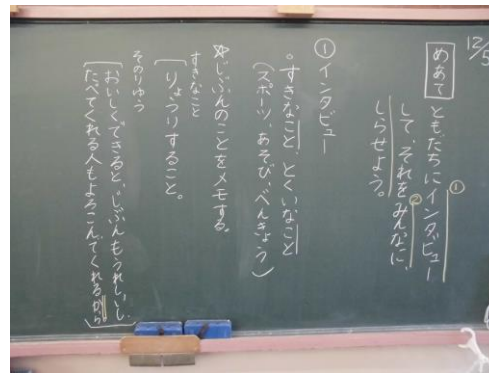 12/5
めあて
ともだちにインタビュー①
して、それをみんなに②
しらせよう。
①インタビュー
。すきなこと、とくいなこと
(スポーツ、あそび、べんきょう)
☆じぶんのことをメモする。
すきなこと
「りょうりすること。
そのりゆう
おいしくできると、じぶんもうれしいし、
たべてくれる人もよろこんでくれるから。